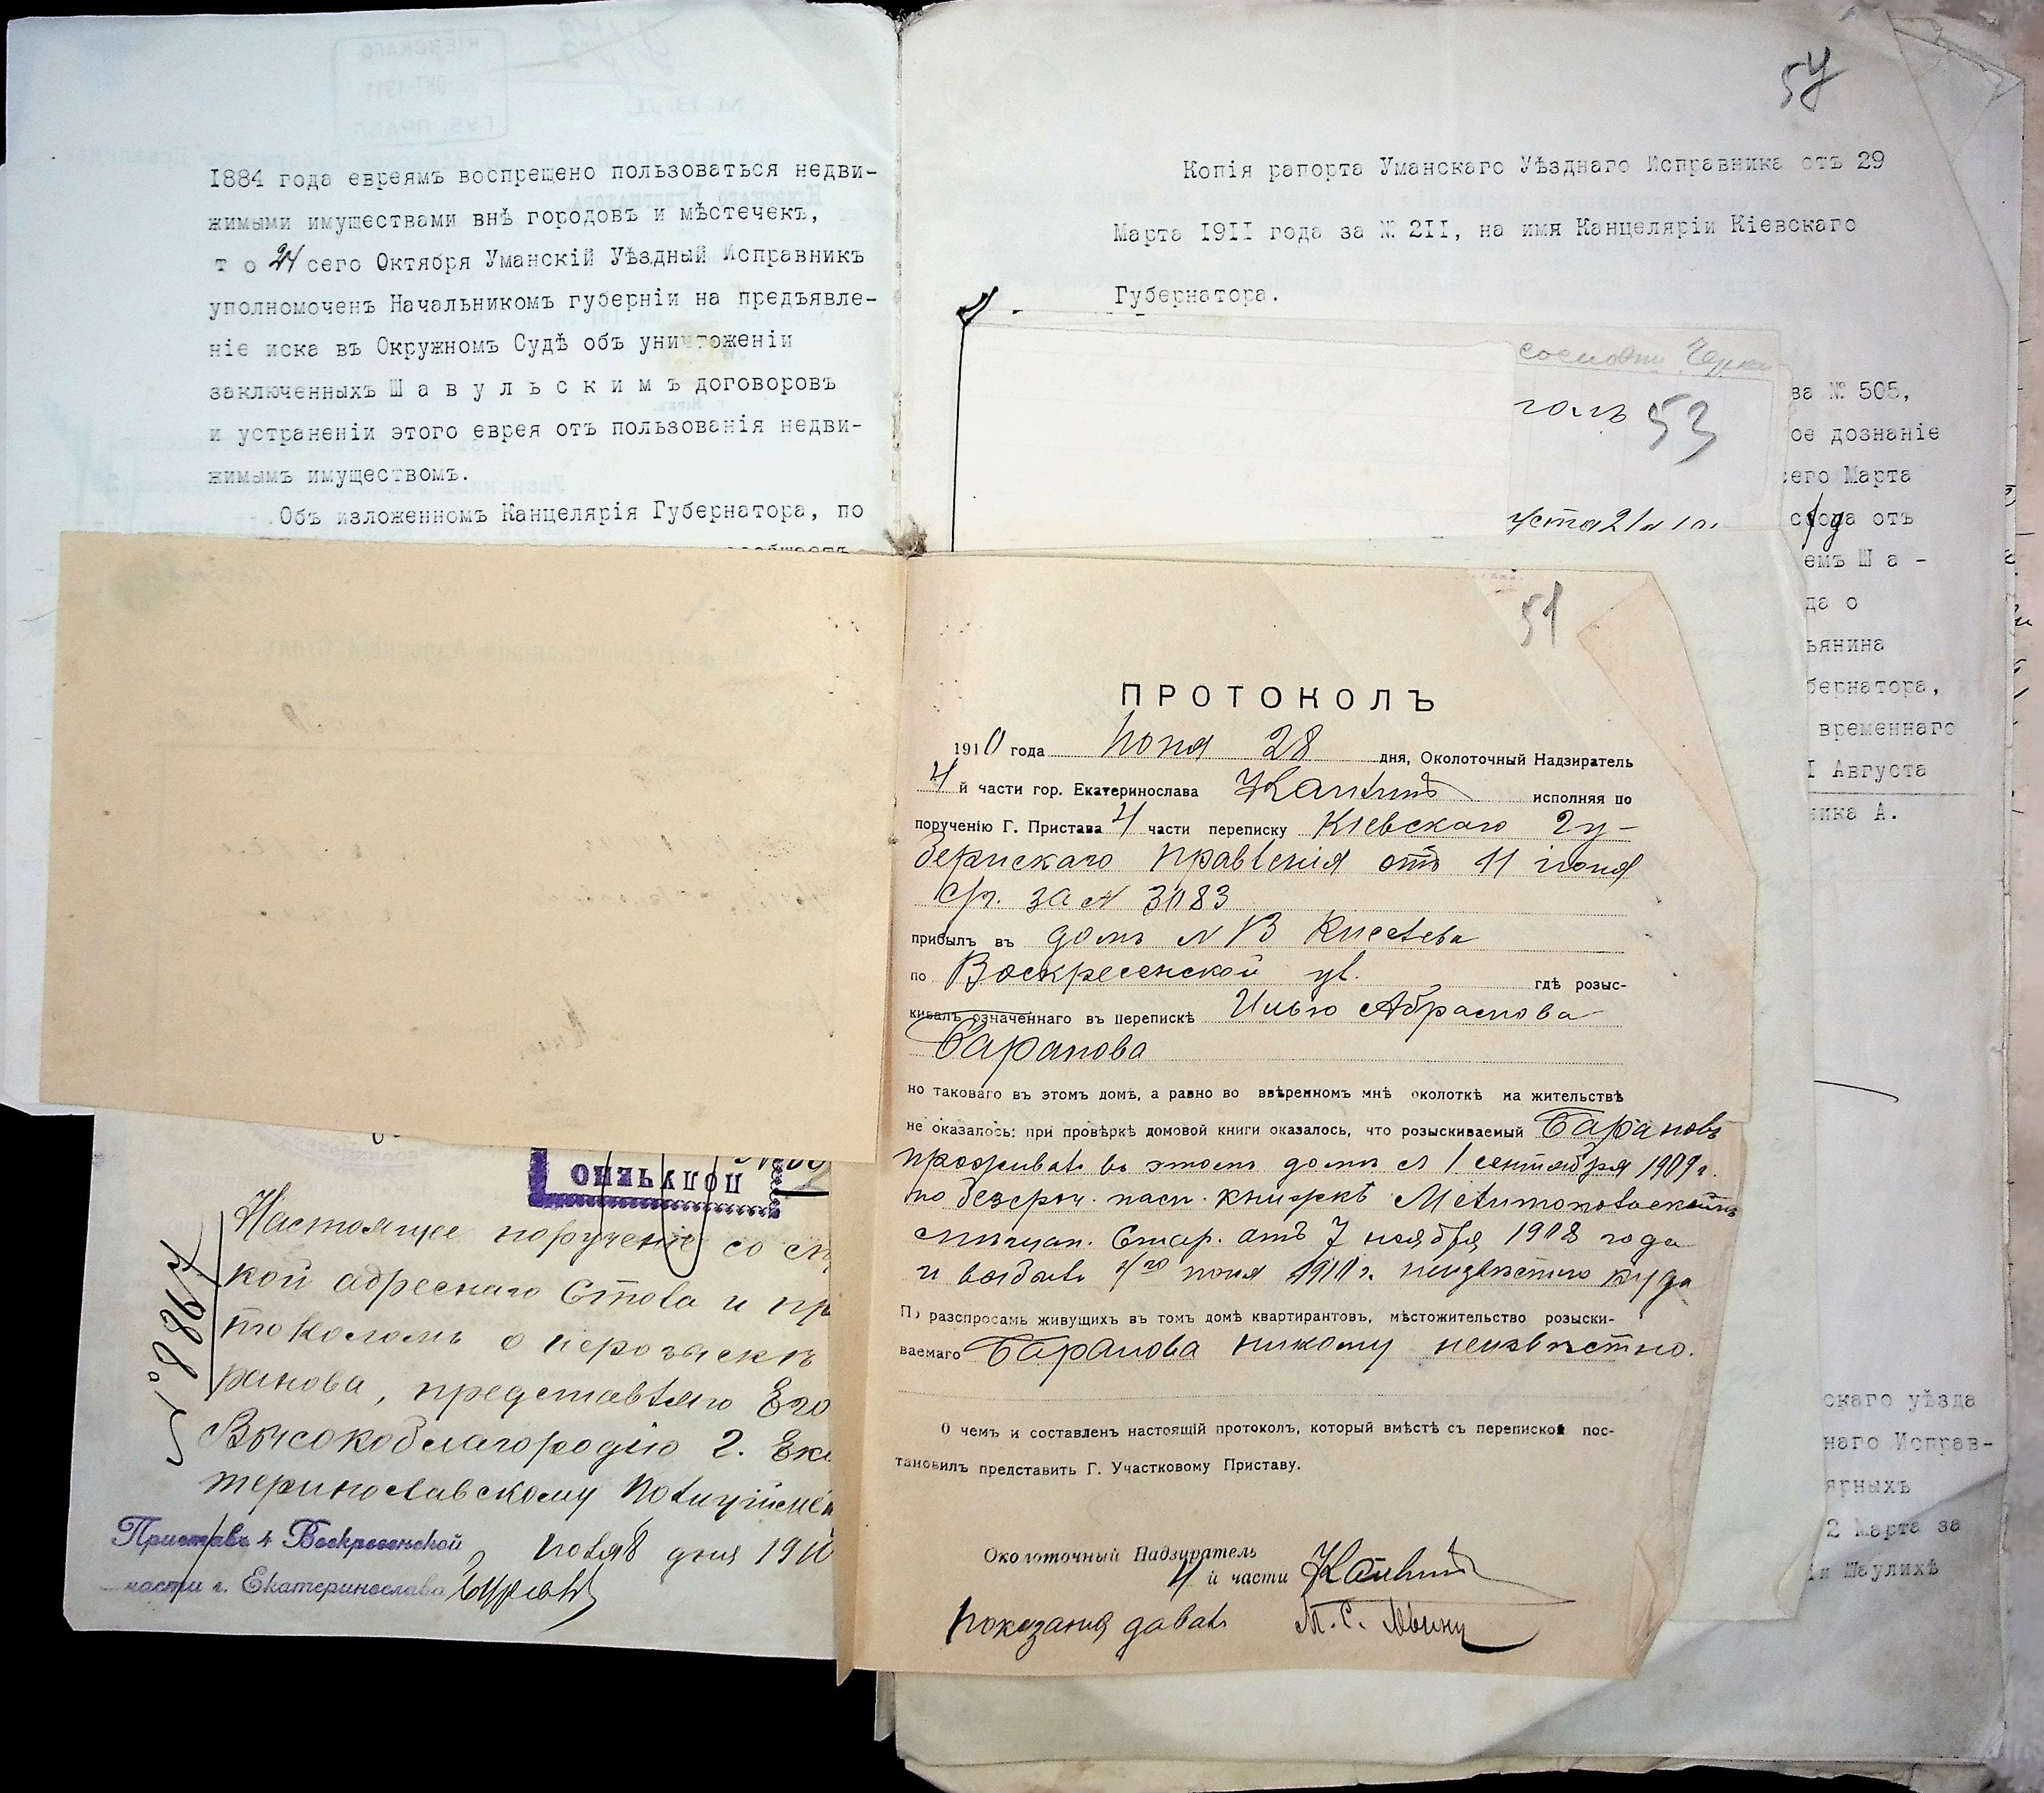 1884 года евреямъ воспрещено пользоваться недви-
жимыми имуществами внѣ городовъ и мѣстечекъ,
т о 24 сего Октября Уманскій Уѣздный Исправникъ
уполномоченъ Начальникомъ губерніи на предъявле-
ніе иска въ Окружномъ Судѣ объ уничтоженіи
заключенныхъ Ш а в у л ь с к и м ъ договоровъ
и устраненіи этого еврея отъ пользованія недви-
жимымъ имуществомъ.
Объ изложенномъ Канцелярія Губернатора, по
57
Копія рапорта Уманскаго Уѣзднаго Исправника отъ 29
Марта 1911 года за № 211, на имя Канцеляріи Кіевскаго
Губернатора.
53
за № 505,
ое дознаніе
сего Марта
отъ
емъ Ш а -
да о
ьянина
бернатора,
временнаго
I Августа
ника А.
скаго уѣзда
наго Исправ-
ярныхъ
2 Марта за
ія Шаулихѣ
51
ПРОТОКОЛЪ
1910 года Іюня 28 дня, Околоточный Надзиратель
4 й части гор. Екатеринослава исполняя по
порученію Г. Пристава 4 части переписку Кіевскаго Гу-
бернскаго Правленія отъ 11 іюня
с/г. за № 3083
прибылъ въ домъ № 13
по Воскресенской ул. гдѣ розыс-
кивалъ означеннаго въ перепискѣ Илью Абрамова
Баранова
но таковаго въ этомъ домѣ, а равно во ввѣренномъ мнѣ околоткѣ на жительствѣ
не оказалось: при провѣркѣ домовой книги оказалось, что розыскиваемый Барановъ
проживалъ въ этомъ домѣ съ 1 сентября 1909 г.
по безсроч. пасп. книжкѣ Мелитопольской
мѣщан. Стар. отъ 7 ноября 1908 года
и выбылъ 4го іюня 1910 г. неизвѣстно куда
По разспросамъ живущихъ въ томъ домѣ квартирантовъ, мѣстожительство розыски-
ваемаго Баранова никому неизвѣстно.
О чемъ и составленъ настоящій протоколъ, который вмѣстѣ съ перепиской пос-
тановилъ представить Г. Участковому Приставу.
Околоточный Надзиратель
4 й части
Показания давалъ М. С.
ПОЛУЧЕНО
Настоящее порученіе со сп
кой адреснаго Стола и пр
токоломъ о нерозыскѣ
ранова, представляю Его
Высокоблагородію г. Ека
теринославскому Полиціймей
Приставъ 4 Воскресенской
Іюля 8 дня 1910
части г. Екатеринослава